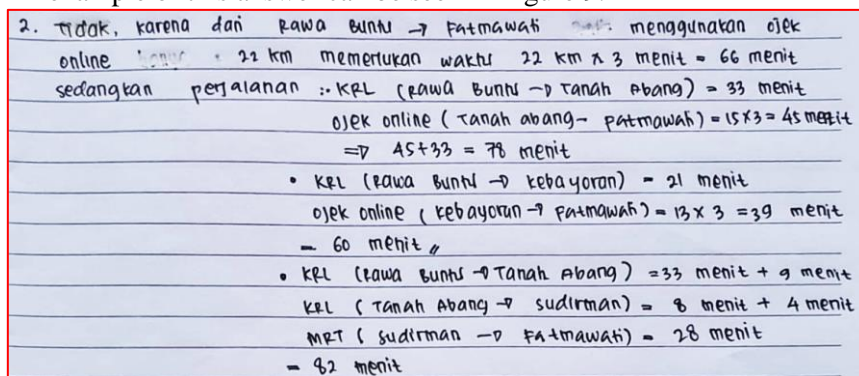 2. Tidak, karena dari Rawa Buntu → Fatmawati menggunakan ojek
online 22 km memerlukan waktu 22 km x 3 menit = 66 menit
sedangkan perjalanan : • KRL (Rawa Buntu → Tanah Abang) = 33 menit
Ojek online (Tanah abang - Fatmawati) = 15x3 = 45 menit
⇒ 45+33 = 78 menit
• KRL (Rawa Buntu → Kebayoran) = 21 menit
Ojek online (kebayoran → Fatmawati) = 13 x 3 = 39 menit
= 60 menit //
• KRL (Rawa Buntu → Tanah Abang) = 33 menit + 9 menit
KRL (Tanah Abang → Sudirman) = 8 menit + 4 menit
MRT (Sudirman → Fatmawati) = 28 menit
= 82 menit